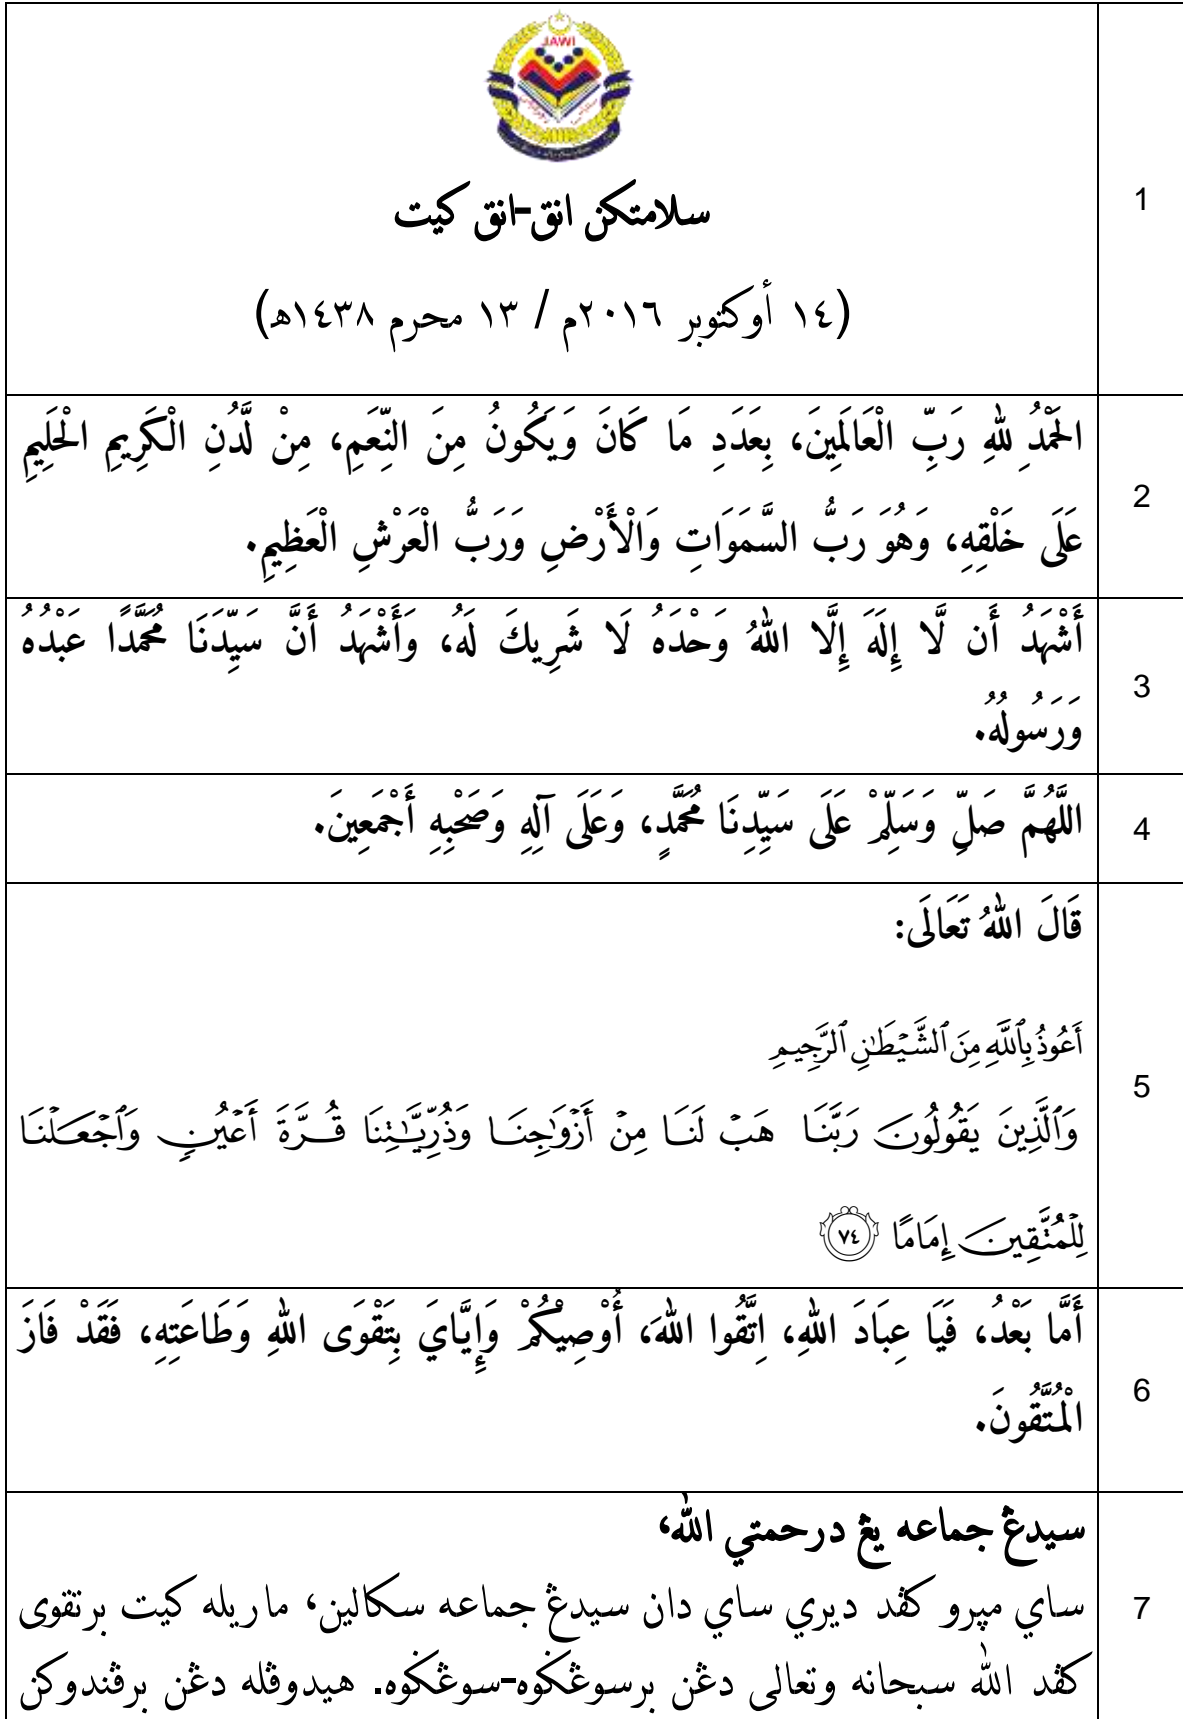 JAWI
سلامتكن انق-انق كيت
(١٤ أوكتوبر ٢٠١٦م / ١٣ محرم ١٤٣٨ھ)
1
الْحَمْدُ لِلّٰهِ رَبِّ الْعَالَمِينَ، بِعَدَدِ مَا كَانَ وَيَكُونُ مِنَ النِّعَمِ، مِنْ لَّدُنِ الْكَرِيمِ الْحَلِيمِ
عَلَى خَلْقِهِ، وَهُوَ رَبُّ السَّمَوَاتِ وَالْأَرْضِ وَرَبُّ الْعَرْشِ الْعَظِيمِ.
2
أَشْهَدُ أَن لَّا إِلَهَ إِلَّا اللهُ وَحْدَهُ لَا شَرِيكَ لَهُ، وَأَشْهَدُ أَنَّ سَيِّدَنَا مُحَمَّدًا عَبْدُهُ
وَرَسُولُهُ.
3
اللَّهُمَّ صَلِّ وَسَلِّمْ عَلَى سَيِّدِنَا مُحَمَّدٍ، وَعَلَى آلِهِ وَصَحْبِهِ أَجْمَعِينَ.
4
قَالَ اللهُ تَعَالَى:
أَعُوذُ بِٱللَّهِ مِنَ ٱلشَّيۡطَٰنِ ٱلرَّجِيمِ
وَٱلَّذِينَ يَقُولُونَ رَبَّنَا هَبۡ لَنَا مِنۡ أَزۡوَٰجِنَا وَذُرِّيَّٰتِنَا قُرَّةَ أَعۡيُنٖ وَٱجۡعَلۡنَا
لِلۡمُتَّقِينَ إِمَامًا ٧٤
5
أَمَّا بَعْدُ، فَيَا عِبَادَ اللهِ، اِتَّقُوا اللهَ، أُوْصِيْكُمْ وَإِيَّايَ بِتَقْوَى اللهِ وَطَاعَتِهِ، فَقَدْ فَازَ
الْمُتَّقُونَ.
6
سيدڠ جماعه يڠ درحمتي الله،
ساي مپرو كڤد ديري ساي دان سيدڠ جماعه سكالين، ماريله كيت برتقوى
كڤد الله سبحانه وتعالى دڠن برسوڠݢوه-سوڠݢوه. هيدوڤله دڠن برڤندوكن
7